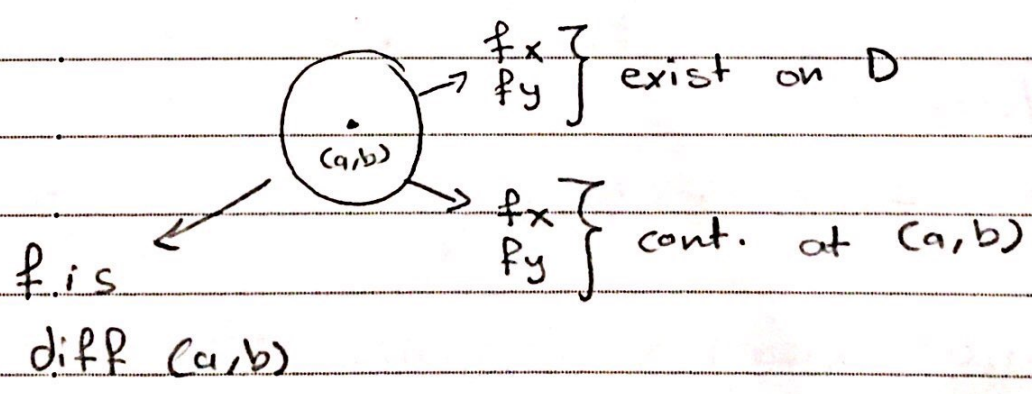 fx
fy } exist on D
(a,b)
fx
fy } cont. at (a,b)
f is
diff (a,b)